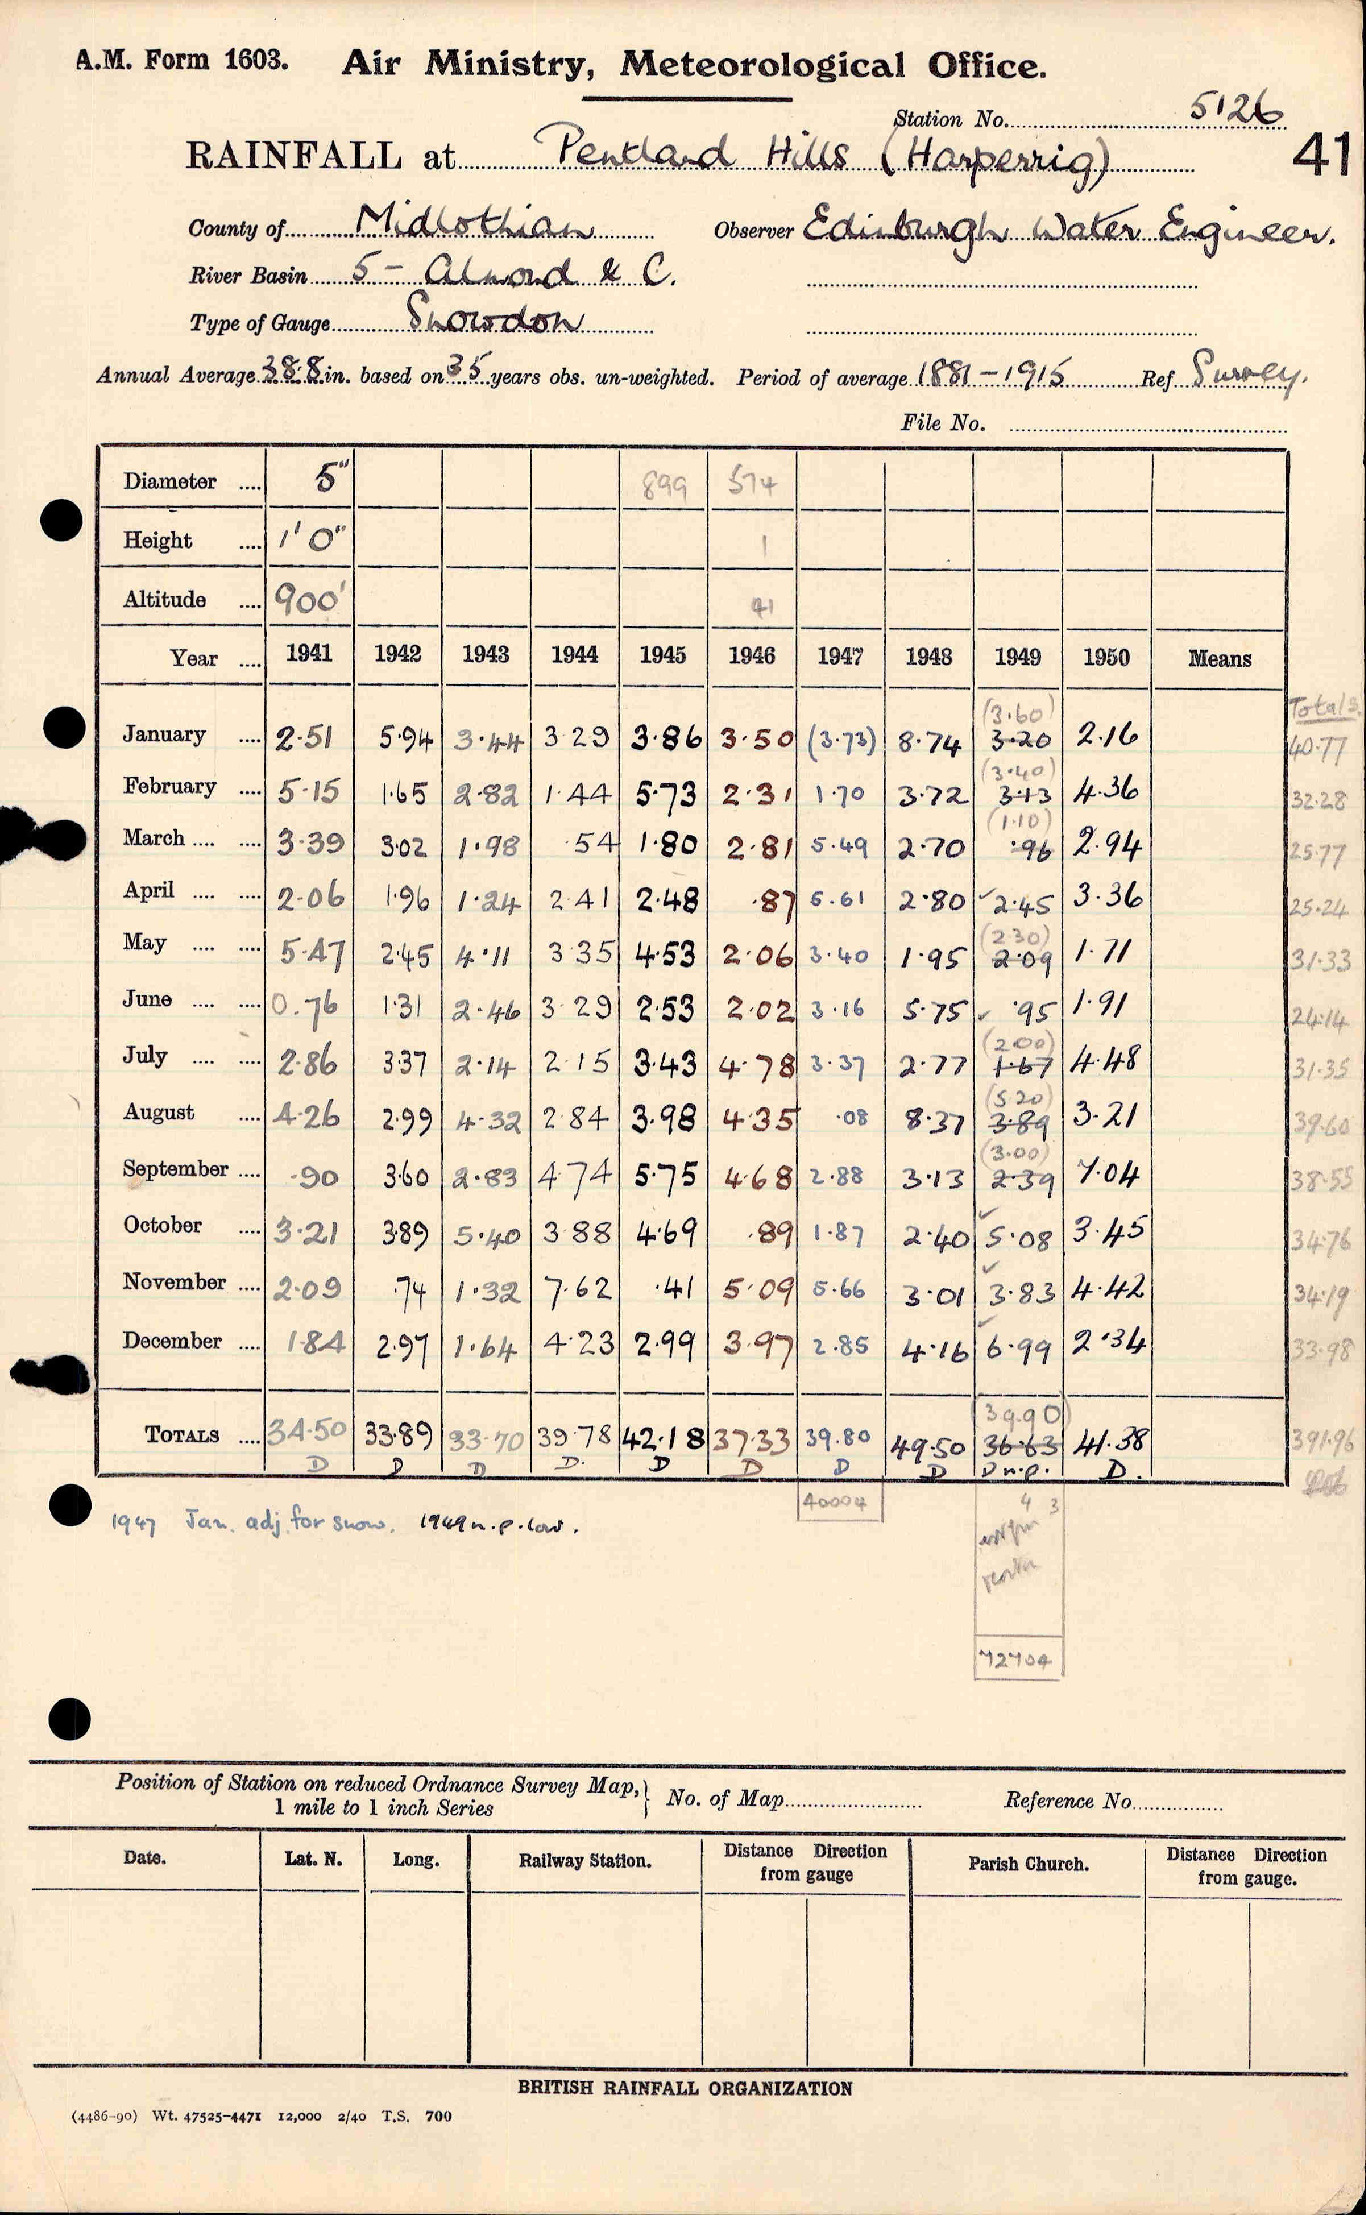 A.M. Form 1603. Air Ministry, Meteorological Office.
Station No. 5126
RAINFALL at Pentland Hills (Harperrig) 41
County of Midlothian Observer Edinburgh Water Engineer.
River Basin 5 - Almond & C.
Type of Gauge Snowdon
Annual Average 38.8 in. based on 35 years obs. un-weighted. Period of average 1881-1915 Ref Survey.
File No.
Diameter .... 5" 899 574
Height .... 1' 0" 1
Altitude .... 900' 41
Year .... 1941 1942 1943 1944 1945 1946 1947 1948 1949 1950 Means
Totals
(3.60)
January .... 2.51 5.94 3.44 3.29 3.86 3.50 (3.73) 8.74 3.20 2.16 40.77
(3.40)
February .... 5.15 1.65 2.82 1.44 5.73 2.31 1.70 3.72 3.13 4.36 32.28
(1.10)
March .... .... 3.39 3.02 1.98 .54 1.80 2.81 5.49 2.70 .96 2.94 25.77
April .... .... 2.06 1.96 1.24 2.41 2.48 .87 5.61 2.80 2.45 3.36 25.24
(2.30)
May .... .... 5.47 2.45 4.11 3.35 4.53 2.06 3.40 1.95 2.09 1.71 31.33
June .... .... 0.76 1.31 2.46 3.29 2.53 2.02 3.16 5.75 .95 1.91 24.14
(2.00)
July .... .... 2.86 3.37 2.14 2.15 3.43 4.78 3.37 2.77 1.67 4.48 31.35
(5.20)
August .... 4.26 2.99 4.32 2.84 3.98 4.35 .08 8.37 3.89 3.21 39.60
(3.00)
September .... .90 3.60 2.83 4.74 5.75 4.68 2.88 3.13 2.39 7.04 38.55
October .... 3.21 3.89 5.40 3.88 4.69 .89 1.87 2.40 5.08 3.45 34.76
November .... 2.09 .74 1.32 7.62 .41 5.09 5.66 3.01 3.83 4.42 34.19
December .... 1.84 2.97 1.64 4.23 2.99 3.97 2.85 4.16 6.99 2.34 33.98
(39.90)
TOTALS .... 34.50 33.89 33.70 39.78 42.18 37.33 39.80 49.50 36.63 41.38 391.96
D D D D. D D D D D n.p. D.
40004 4 3
1947 Jan. adj. for snow. 1949 n.p. low.
72704
Position of Station on reduced Ordnance Survey Map, } No. of Map Reference No.
1 mile to 1 inch Series
Date. Lat. N. Long. Railway Station. Distance Direction from gauge Parish Church. Distance Direction from gauge.
BRITISH RAINFALL ORGANIZATION
(4486-90) Wt. 47525-4471 12,000 2/40 T.S. 700